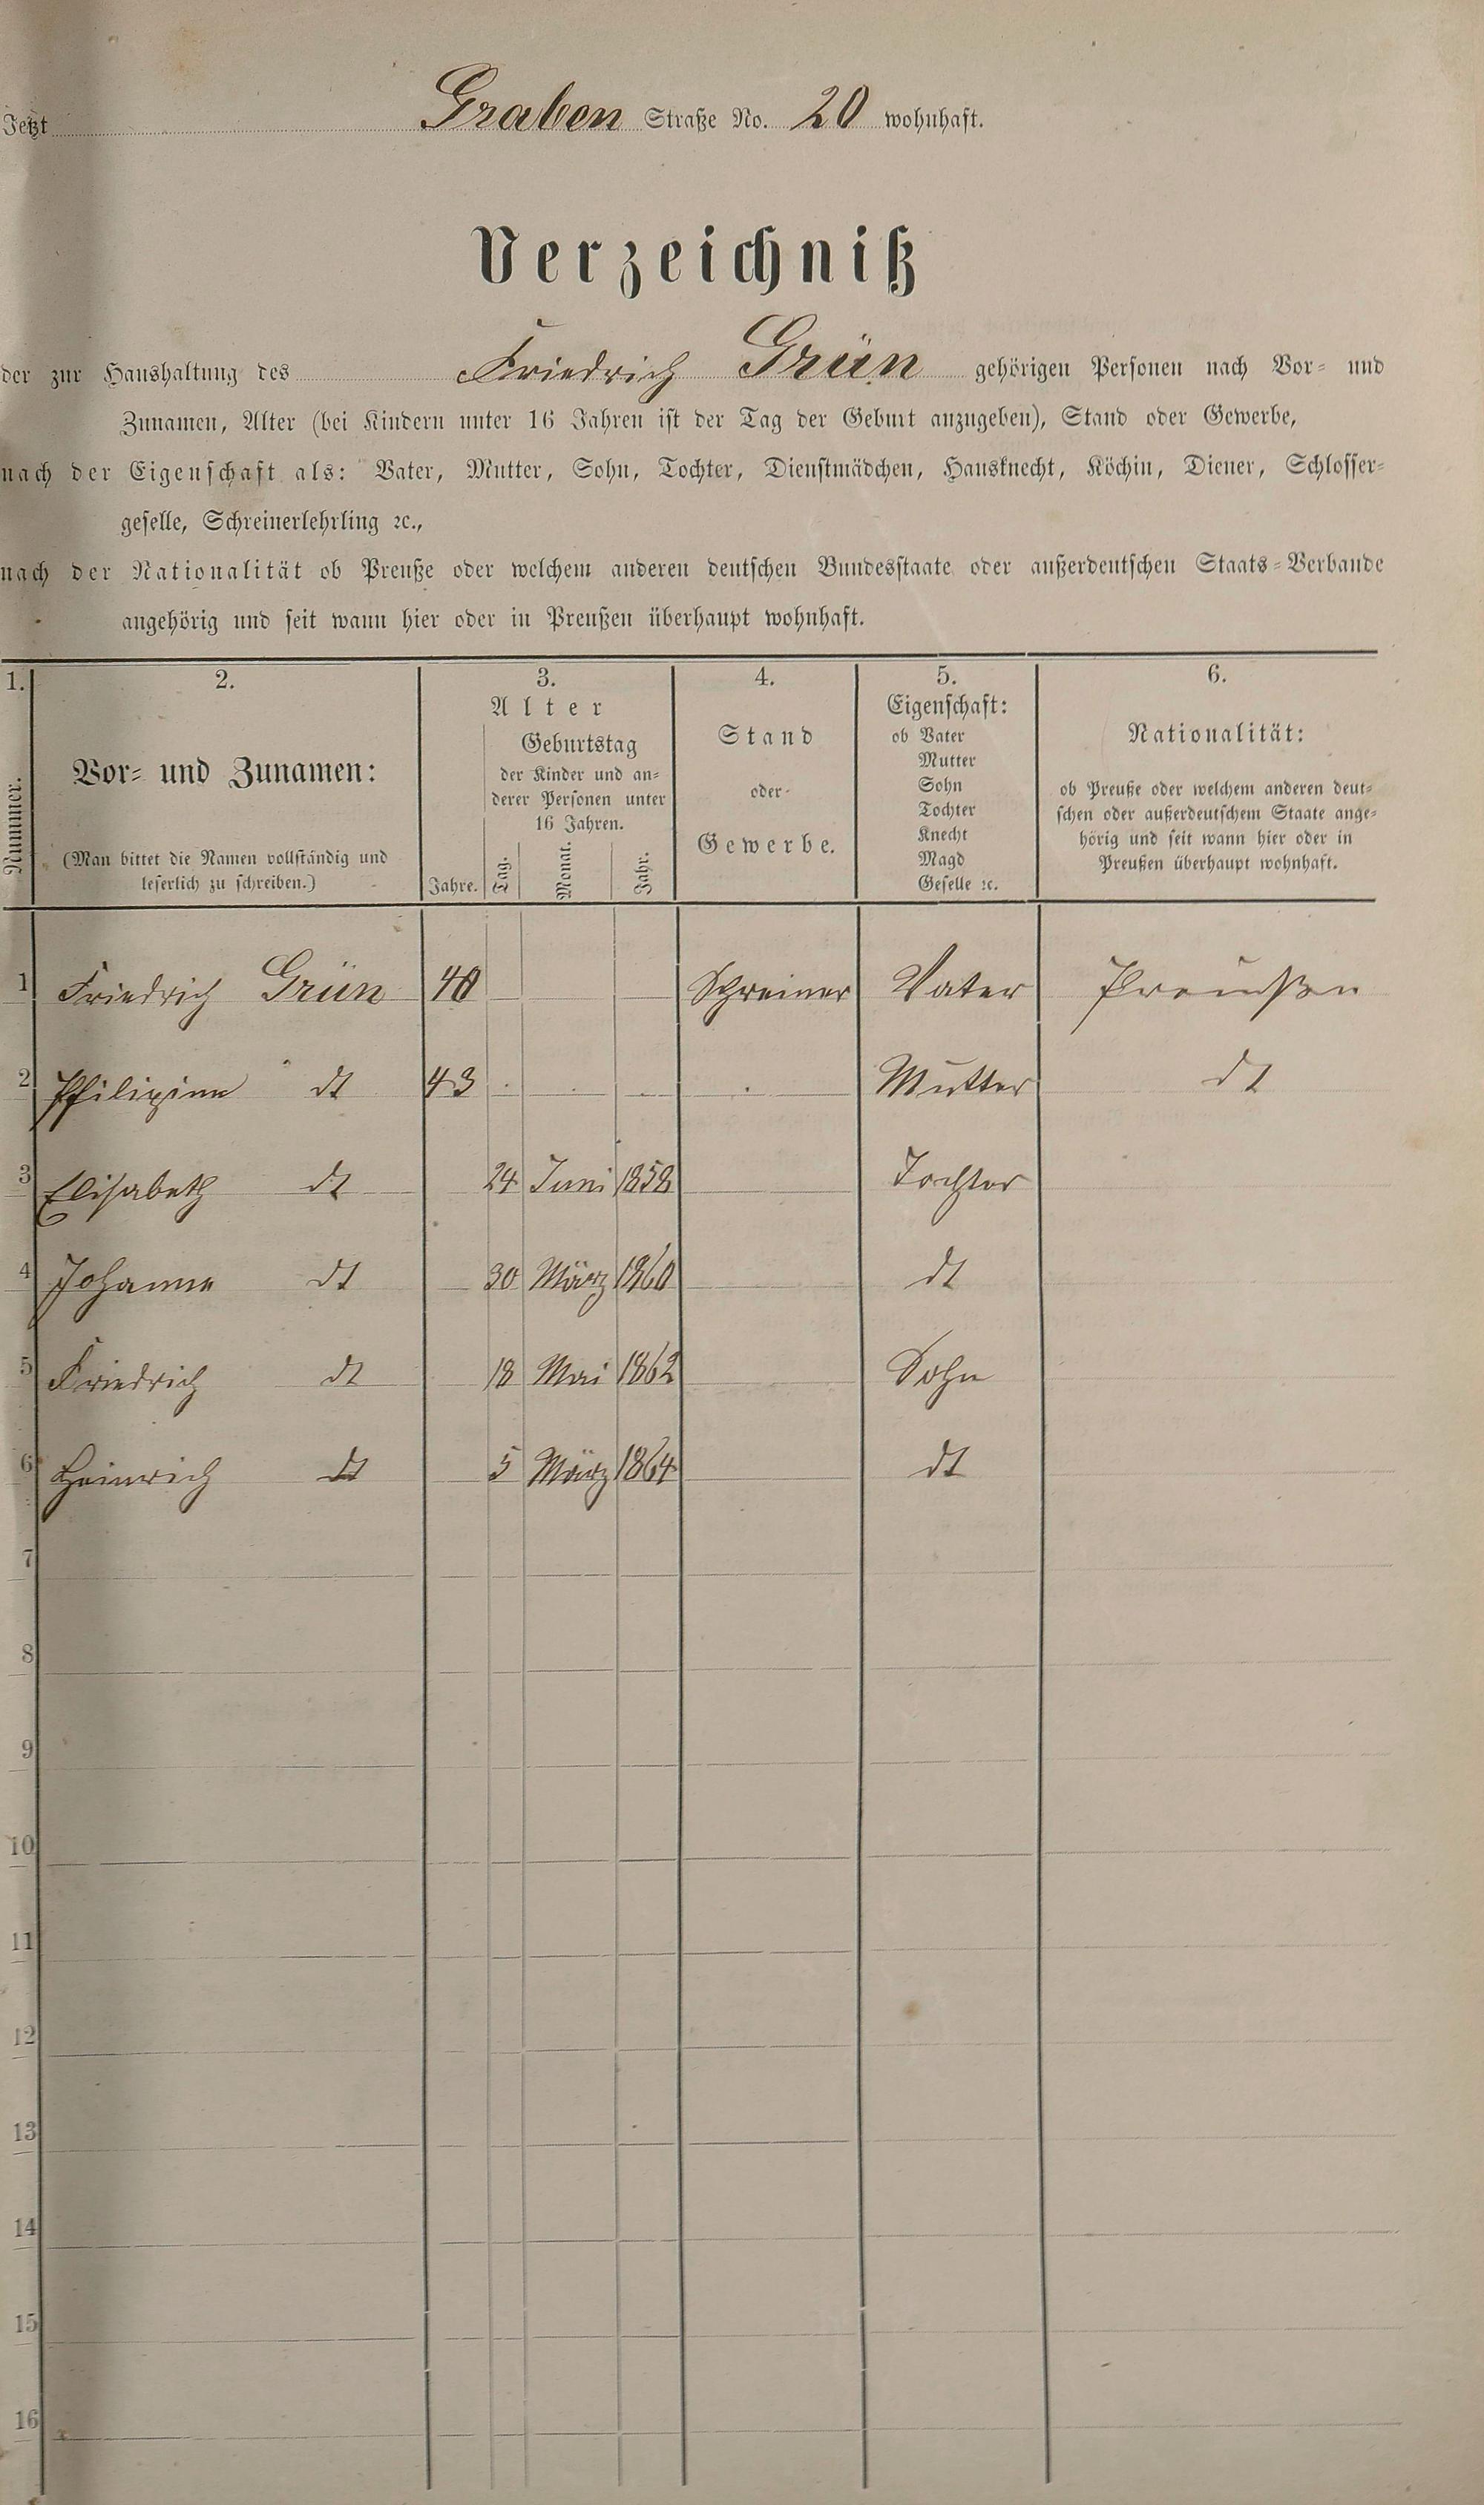 Jetzt Graben Straße No. 20 wohnhaft.
Verzeichniß
der zur Haushaltung des Friedrich Grün gehörigen Personen nach Vor- und
Zunamen, Alter (bei Kindern unter 16 Jahren ist der Tag der Geburt anzugeben), Stand oder Gewerbe,
nach der Eigenschaft als: Vater, Mutter, Sohn, Tochter, Dienstmädchen, Hausknecht, Köchin, Diener, Schlosser-
geselle, Schreinerlehrling ꝛc.,
nach der Nationalität ob Preuße oder welchem anderen deutschen Bundesstaate oder außerdeutschen Staats-Verbande
angehörig und seit wann hier oder in Preußen überhaupt wohnhaft.
1.
Nummer.
2.
Vor- und Zunamen:
(Man bittet die Namen vollständig und
leserlich zu schreiben.)
3.
Alter
Geburtstag
der Kinder und an-
derer Personen unter
16 Jahren.
Jahre. Tag. Monat. Jahr.
4.
Stand
oder
Gewerbe.
5.
Eigenschaft:
ob Vater
Mutter
Sohn
Tochter
Knecht
Magd
Geselle ꝛc.
6.
Nationalität:
ob Preuße oder welchem anderen deut-
schen oder außerdeutschem Staate ange-
hörig und seit wann hier oder in
Preußen überhaupt wohnhaft.
1 Friedrich Grün 40 Schreiner Vater Preußen
2 Philipine dt 43 Mutter dt
3 Elisabeth dt 24 Juni 1858 Tochter
4 Johanna dt 30 März 1860 dt
5 Friedrich dt 18 Mai 1862 Sohn
6 Heinrich dt 5 März 1864 dt
7
8
9
10
11
12
13
14
15
16